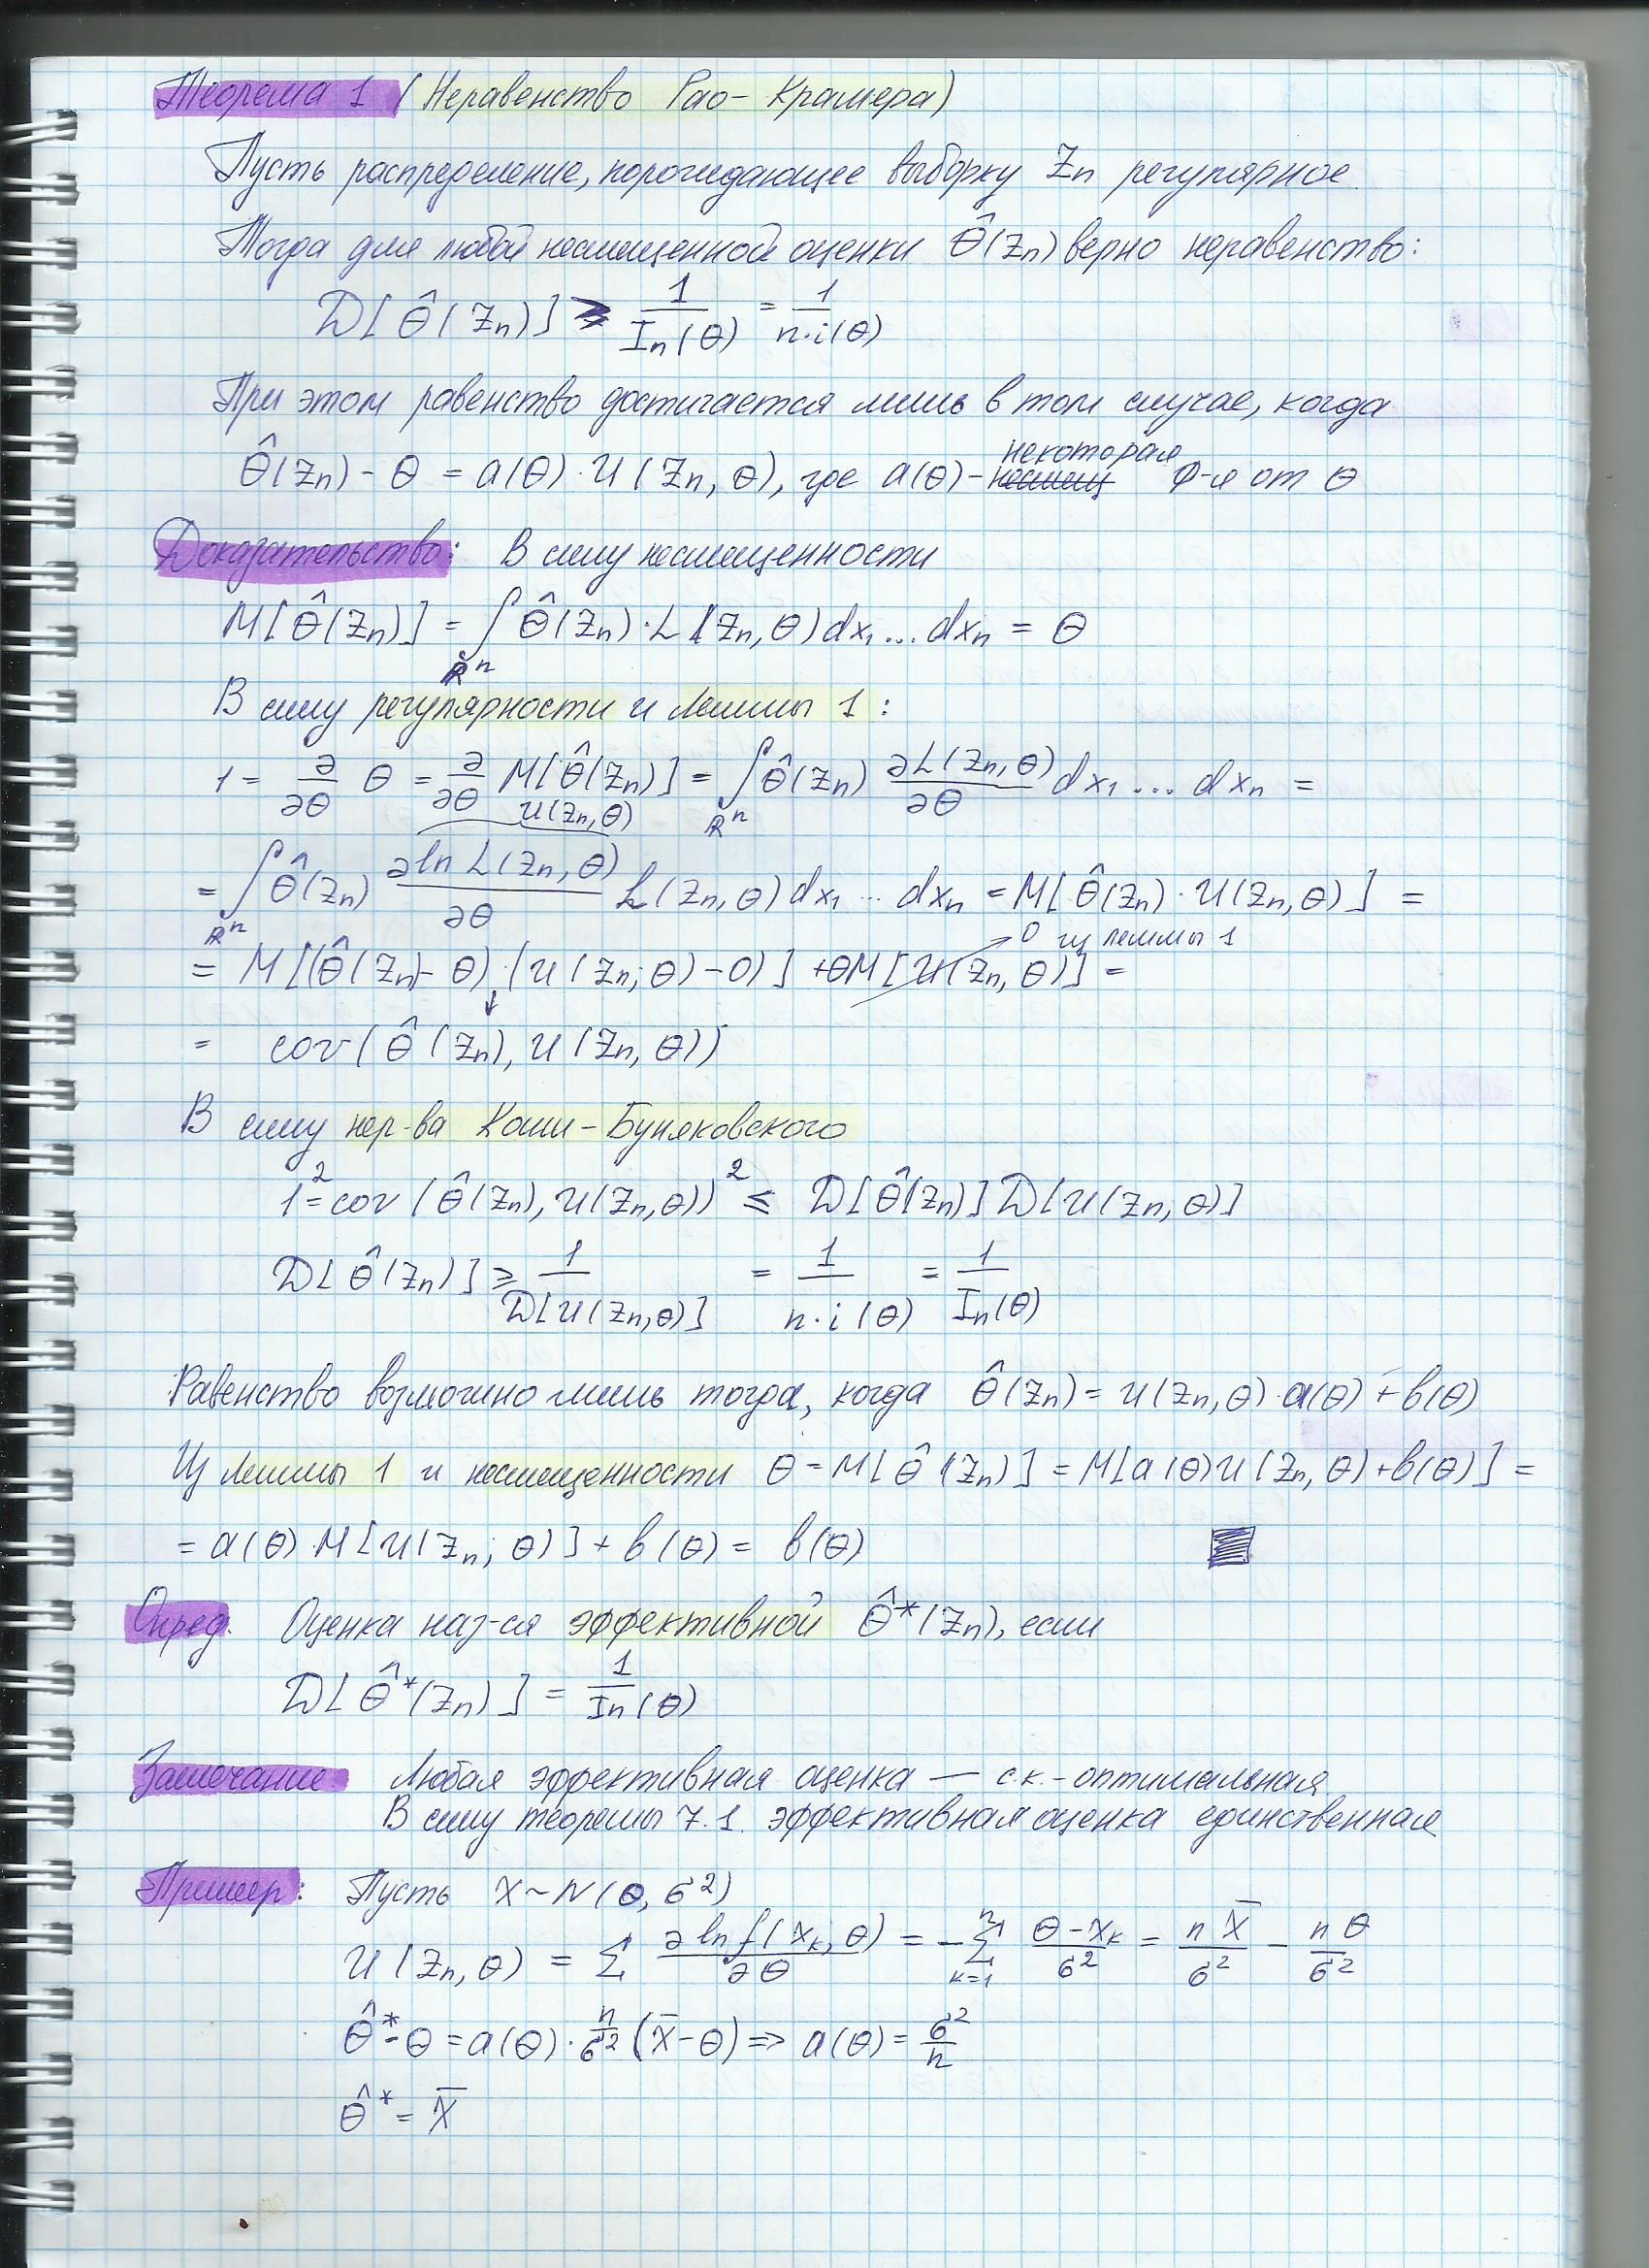 Теорема 1 (Неравенство Рао-Крамера)
Пусть распределение, порождающее выборку Zn регулярное.
Тогда для любой несмещенной оценки θ̂(Zn) верно неравенство:
D[θ̂(Zn)] ≥ 1/In(θ) = 1/(n·i(θ))
При этом равенство достигается лишь в том случае, когда
θ̂(Zn) - θ = a(θ)·U(Zn, θ), где a(θ) - некоторая ф-я от θ
Доказательство: В силу несмещенности
M[θ̂(Zn)] = ∫_{R^n} θ̂(Zn)·L(Zn, θ) dx₁...dxn = θ
В силу регулярности и Леммы 1:
1 = ∂/∂θ θ = ∂/∂θ M[θ̂(Zn)] = ∫_{R^n} θ̂(Zn) ∂L(Zn, θ)/∂θ dx₁...dxn =
U(Zn, θ)
= ∫_{R^n} θ̂(Zn) ∂ln L(Zn, θ)/∂θ L(Zn, θ) dx₁...dxn = M[θ̂(Zn)·U(Zn, θ)] =
→ 0 из леммы 1
= M[(θ̂(Zn) - θ)·(U(Zn; θ) - 0)] + θM[U(Zn, θ)] =
= cov(θ̂(Zn), U(Zn, θ))
В силу нер-ва Коши-Буняковского
1² = cov(θ̂(Zn), U(Zn, θ))² ≤ D[θ̂(Zn)] D[U(Zn, θ)]
D[θ̂(Zn)] ≥ 1/D[U(Zn, θ)] = 1/(n·i(θ)) = 1/In(θ)
Равенство возможно лишь тогда, когда θ̂(Zn) = U(Zn, θ)·a(θ) + b(θ)
Из Леммы 1 и несмещенности θ = M[θ̂(Zn)] = M[a(θ)U(Zn, θ) + b(θ)] =
= a(θ)·M[U(Zn; θ)] + b(θ) = b(θ)
Опред. Оценка наз-ся эффективной θ̂*(Zn), если
D[θ̂*(Zn)] = 1/In(θ)
Замечание Любая эффективная оценка — с.к.-оптимальная
В силу теоремы 7.1. эффективная оценка единственная
Пример: Пусть X ~ N(θ, σ²)
U(Zn, θ) = Σ ∂ln f(xₖ, θ)/∂θ = -Σ_{k=1}^{n} (θ - xₖ)/σ² = nX̄/σ² - nθ/σ²
θ̂* - θ = a(θ)·n/σ² (X̄ - θ) => a(θ) = σ²/n
θ̂* = X̄